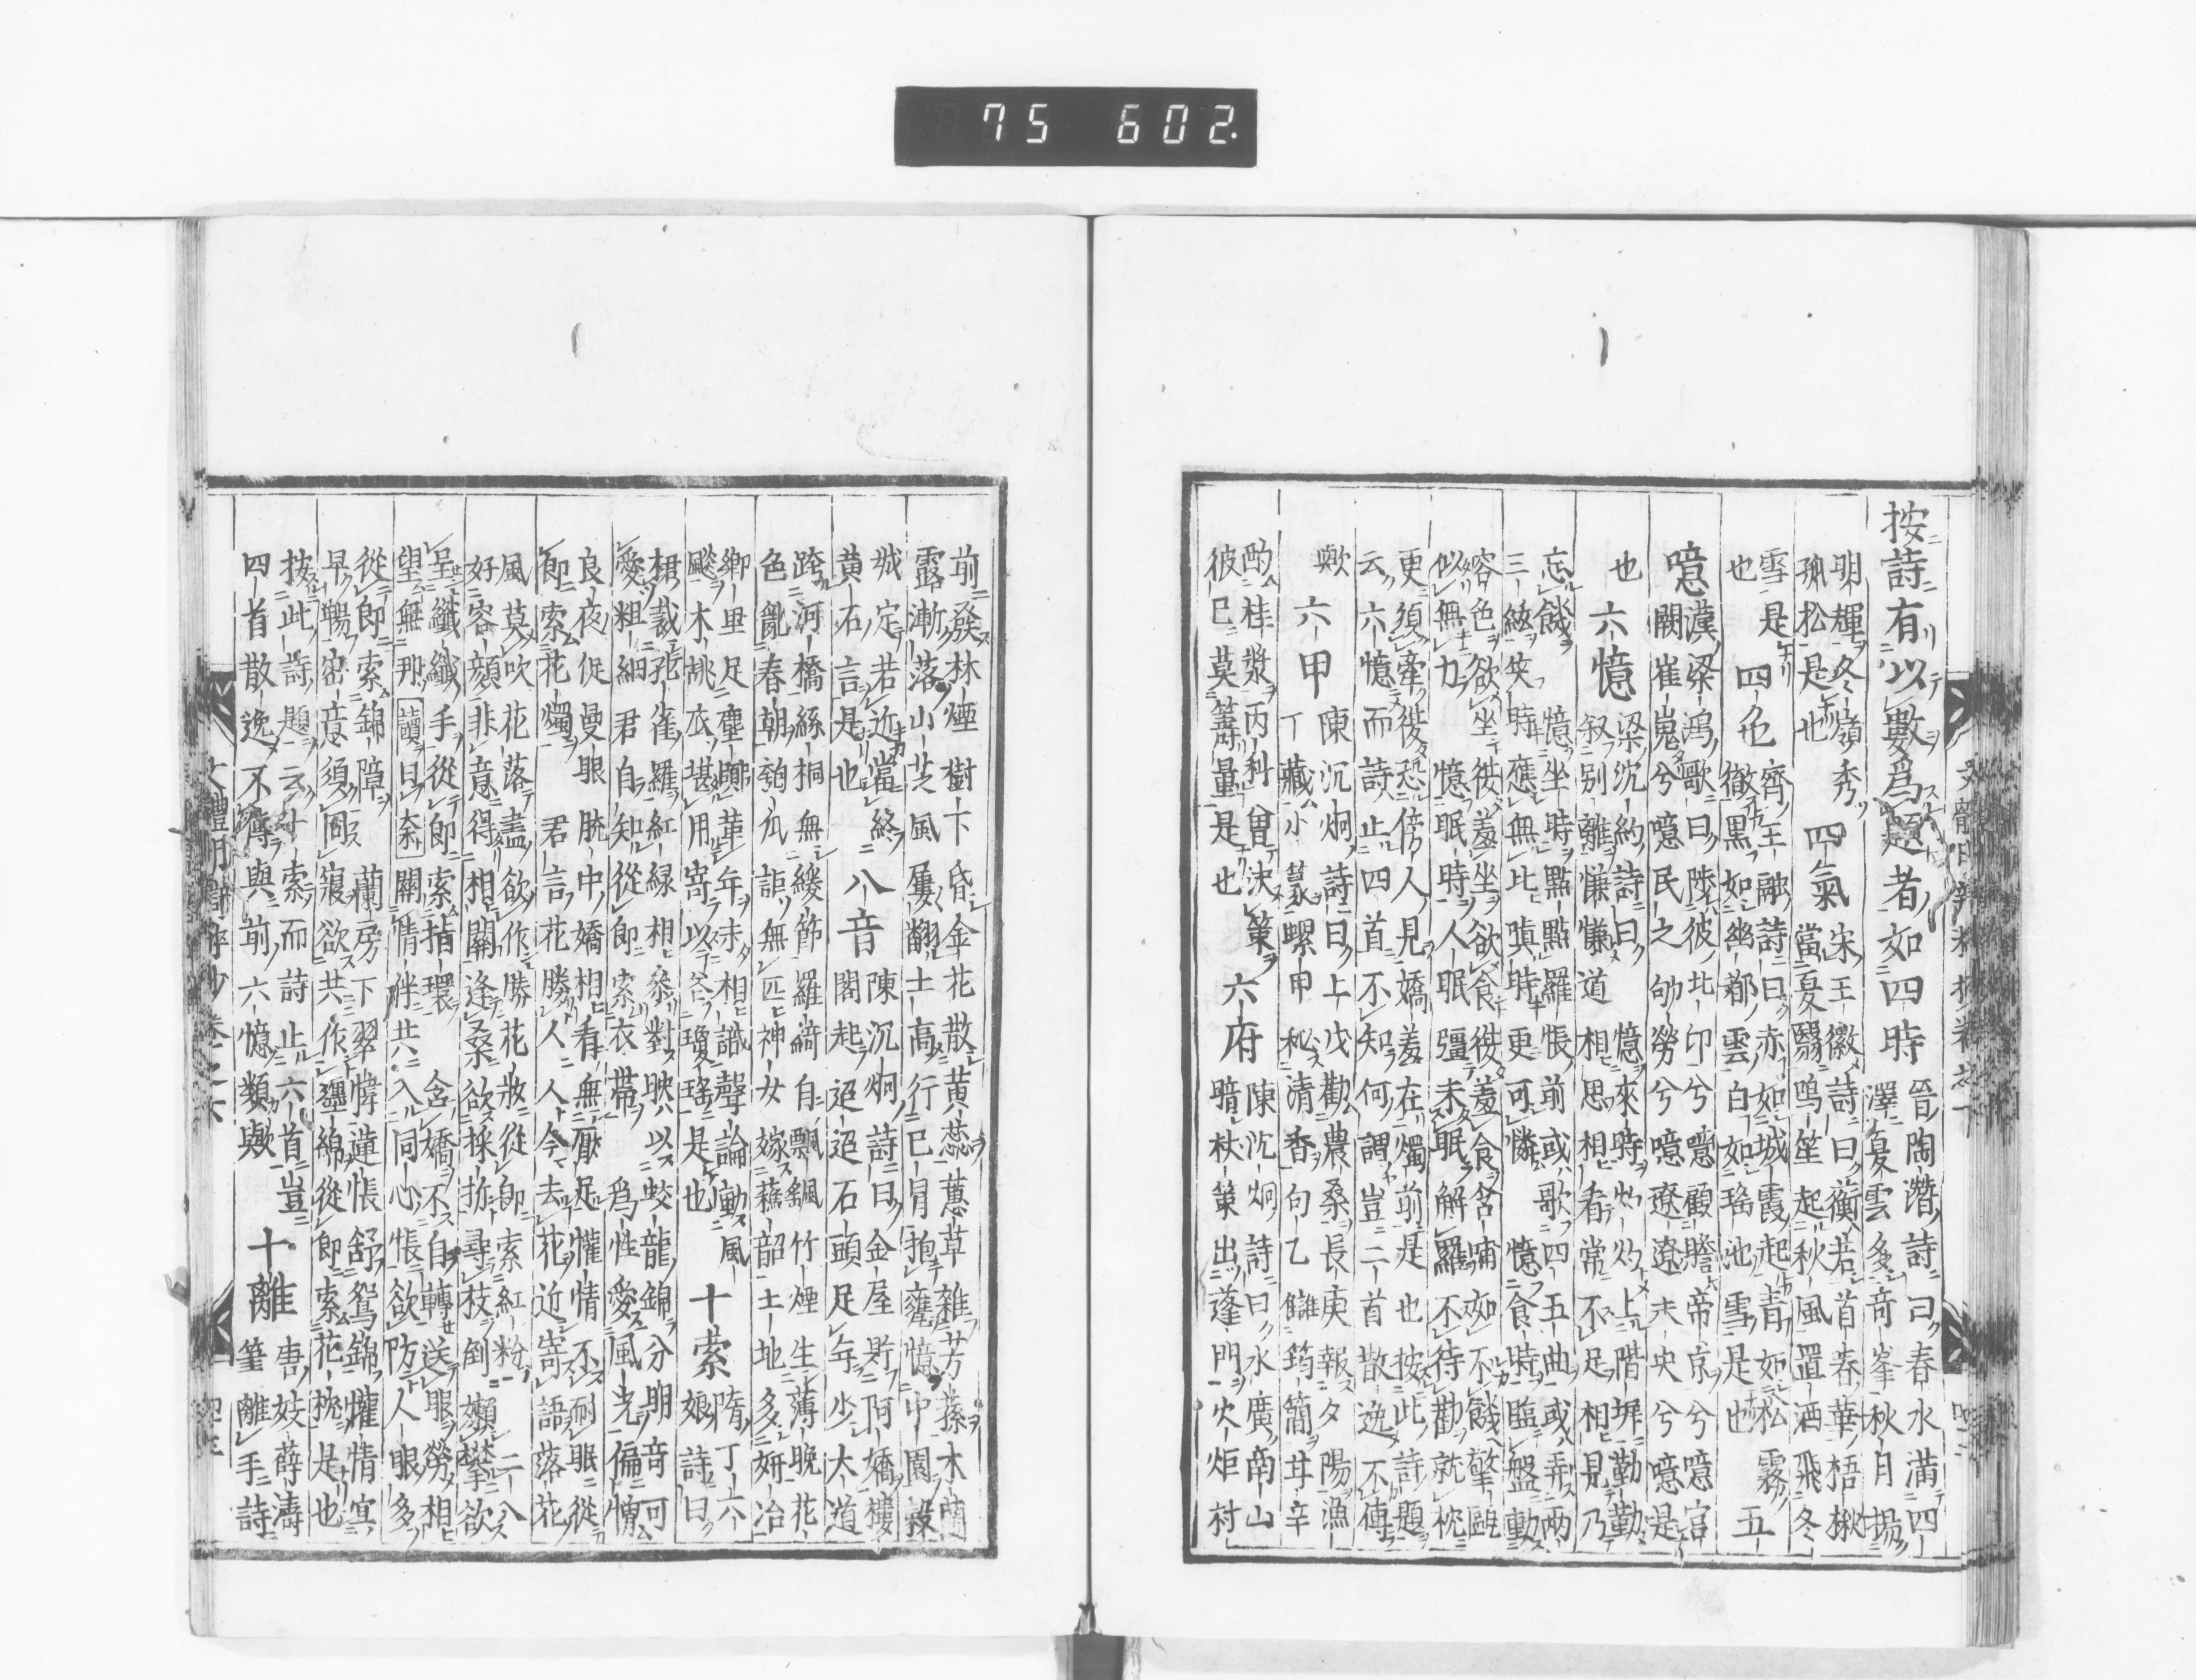 按詩有以數爲題者如四時
晉陶潛詩曰春水滿四
澤夏雲多奇峯秋月揚
明輝冬嶺秀
孤松是也
四氣
宋王徽詩曰衡若首春華梧楸
當夏翳鳴笙起秋風置酒飛冬
雪是
也
四色
齊王融詩曰赤如城霞起青如松霧
徹黒如幽都雲白如瑤池雪是也
五
噫
漢梁鴻歌曰陟彼北卬兮噫顧瞻帝京兮噫宮
闕崔嵬兮噫民之劬勞兮噫遼遼未央兮噫是
也
六憶
梁沈約詩曰憶來時灼灼上階墀勤勤
叙別離慊慊道相思相看常不足相見乃
忘饑憶坐時點點羅帳前或歌四五曲或弄兩
三絃笑時應無比嗔時更可憐憶食時臨盤動
容色欲坐復羞坐欲食復羞食含哺如不饑擎甌
似無力憶眠時人眠彊未眠解羅不待勸就枕
更須牽復恐傍人見嬌羞在燭前是也按此詩題
云六憶而詩止四首不知何謂豈二首散逸不傳
歟
六甲
陳沉炯詩曰上戊勸農桑長庚報夕陽漁
丁藏小篆螺甲秘清香句乙雠筠簡幷辛
酌桂漿丙科曽決策
彼已莫籌量是也
六府
陳沉炯詩曰水廣南山
暗杖策出蓬門火炬村
前發林煙樹下昏金花散黄蕊蕙草雜芳蓀木蘭
露漸落山芝風屢翻土高行已冐抱甕憶中園穀
城定若近當終
黄石言是也
八音
陳沉炯詩曰金屋貯阿嬌樓
閣起迢迢石頭足年少大道
跨河橋絲桐無緩節羅綺自飄飖竹煙生薄晩花
色亂春朝匏瓜詎無匹神女嫁蘇韶土地多妍冶
鄉里足塵囂革年未相識聲論動風
飈木桃底堪用寄以答瓊瑤是也
十索
隋丁六
娘詩曰
裙裁孔雀羅紅緑相參對映以蛟龍錦分明奇可
愛粗細君自知從郎索衣帶 爲性愛風光偏憎
良夜促曼眼腕中嬌相看無厭足懽情不耐眠從
郎索花燭 君言花勝人人今去花近寄語落花
風莫吹花落盡欲作勝花妝從郎索紅粉 二八
好容顔非意得相關逢桑欲採折尋枝倒懶攀欲
呈纖纖手從郎索指環 含嬌不自轉送眼勞相
望無那讀曰奈關情伴共入同心帳欲防人眼多
從郎索錦障 蘭房下翠幃蓮帳舒鴛錦懽情宜
早暢密意須同寢欲共作纒綿從郎索花枕是也
按此詩題云十索而詩止六首豈
四首散逸不傳與前六憶類歟
十離
唐妓薛濤
筆離手詩
75 602.